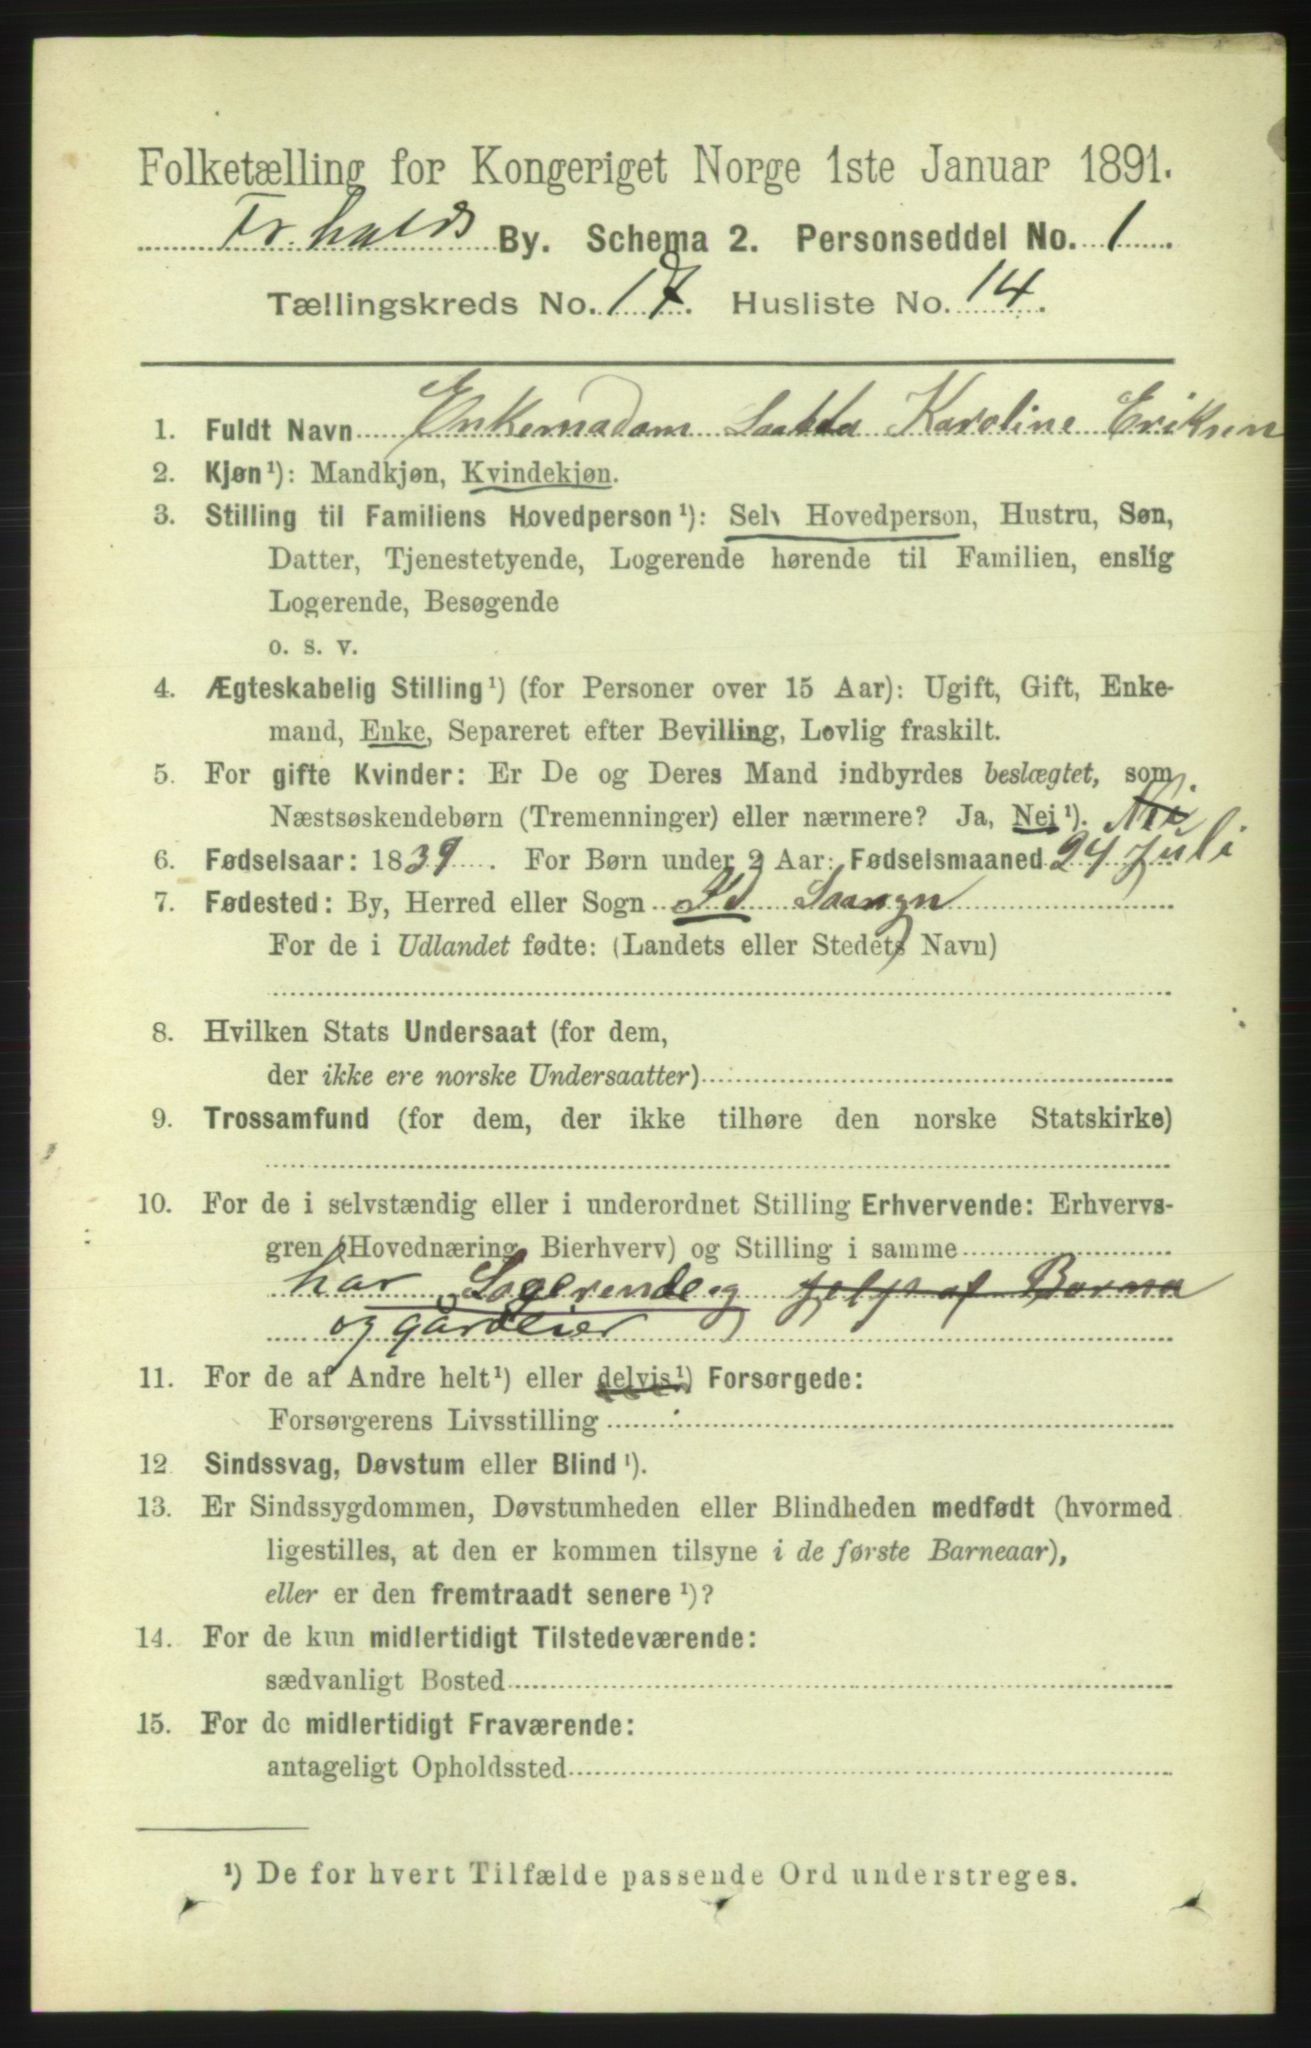 Folketælling for Kongeriget Norge 1ste Januar 1891.
Fr.halds By. Schema 2. Personseddel No. 1
Tællingskreds No. 17. Husliste No. 14.
1. Fuldt Navn Enkemadam Karoline Eriksen
2. Kjøn¹): Mandkjøn, Kvindekjøn.
3. Stilling til Familiens Hovedperson¹): Selv Hovedperson, Hustru, Søn,
Datter, Tjenestetyende, Logerende hørende til Familien, enslig
Logerende, Besøgende
o. s. v.
4. Ægteskabelig Stilling¹) (for Personer over 15 Aar): Ugift, Gift, Enke-
mand, Enke, Separeret efter Bevilling, Lovlig fraskilt.
5. For gifte Kvinder: Er De og Deres Mand indbyrdes beslægtet, som
Næstsøskendebørn (Tremenninger) eller nærmere? Ja, Nei¹). Nei
6. Fødselsaar: 1839. For Børn under 2 Aar: Fødselsmaaned 24 Juli
7. Fødested: By, Herred eller Sogn Id Saangn
For de i Udlandet fødte: (Landets eller Stedets Navn)
8. Hvilken Stats Undersaat (for dem,
der ikke ere norske Undersaatter)
9. Trossamfund (for dem, der ikke tilhøre den norske Statskirke)
10. For de i selvstændig eller i underordnet Stilling Erhvervende: Erhvervs-
gren (Hovednæring, Bierhverv) og Stilling i samme
har Logerende og jelp af Børna
og gårdeier
11. For de af Andre helt¹) eller delvis¹) Forsørgede:
Forsørgerens Livsstilling
12 Sindssvag, Døvstum eller Blind¹).
13. Er Sindssygdommen, Døvstumheden eller Blindheden medfødt (hvormed
ligestilles, at den er kommen tilsyne i de første Barneaar),
eller er den fremtraadt senere¹)?
14. For de kun midlertidigt Tilstedeværende:
sædvanligt Bosted
15. For de midlertidigt Fraværende:
antageligt Opholdssted
¹) De for hvert Tilfælde passende Ord understreges.